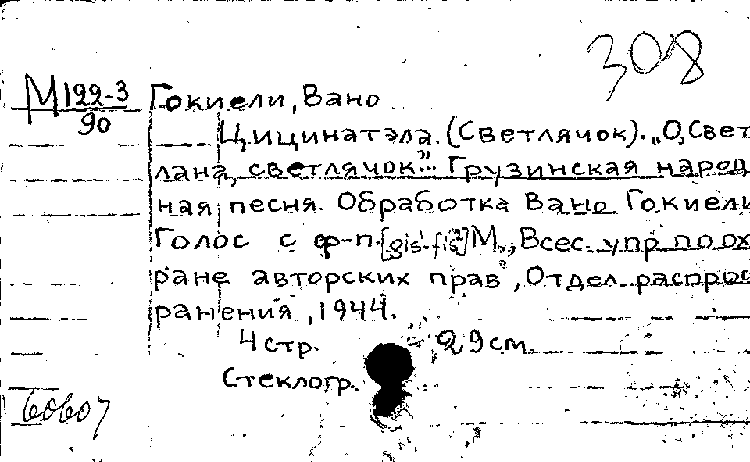 308
М 122-3 Гокиели, Вано
90
Цицинатэла. (Светлячок). „О, Свет
лана, светлячок..." Грузинская народ
ная песня. Обработка Вано Гокиели
Голос с ф-п. [gis-fis²] М., „Всес. упр по ох
ране авторских прав", Отдел распрост
ранения, 1944.
4 стр. 29 см.
Стеклогр.
60607